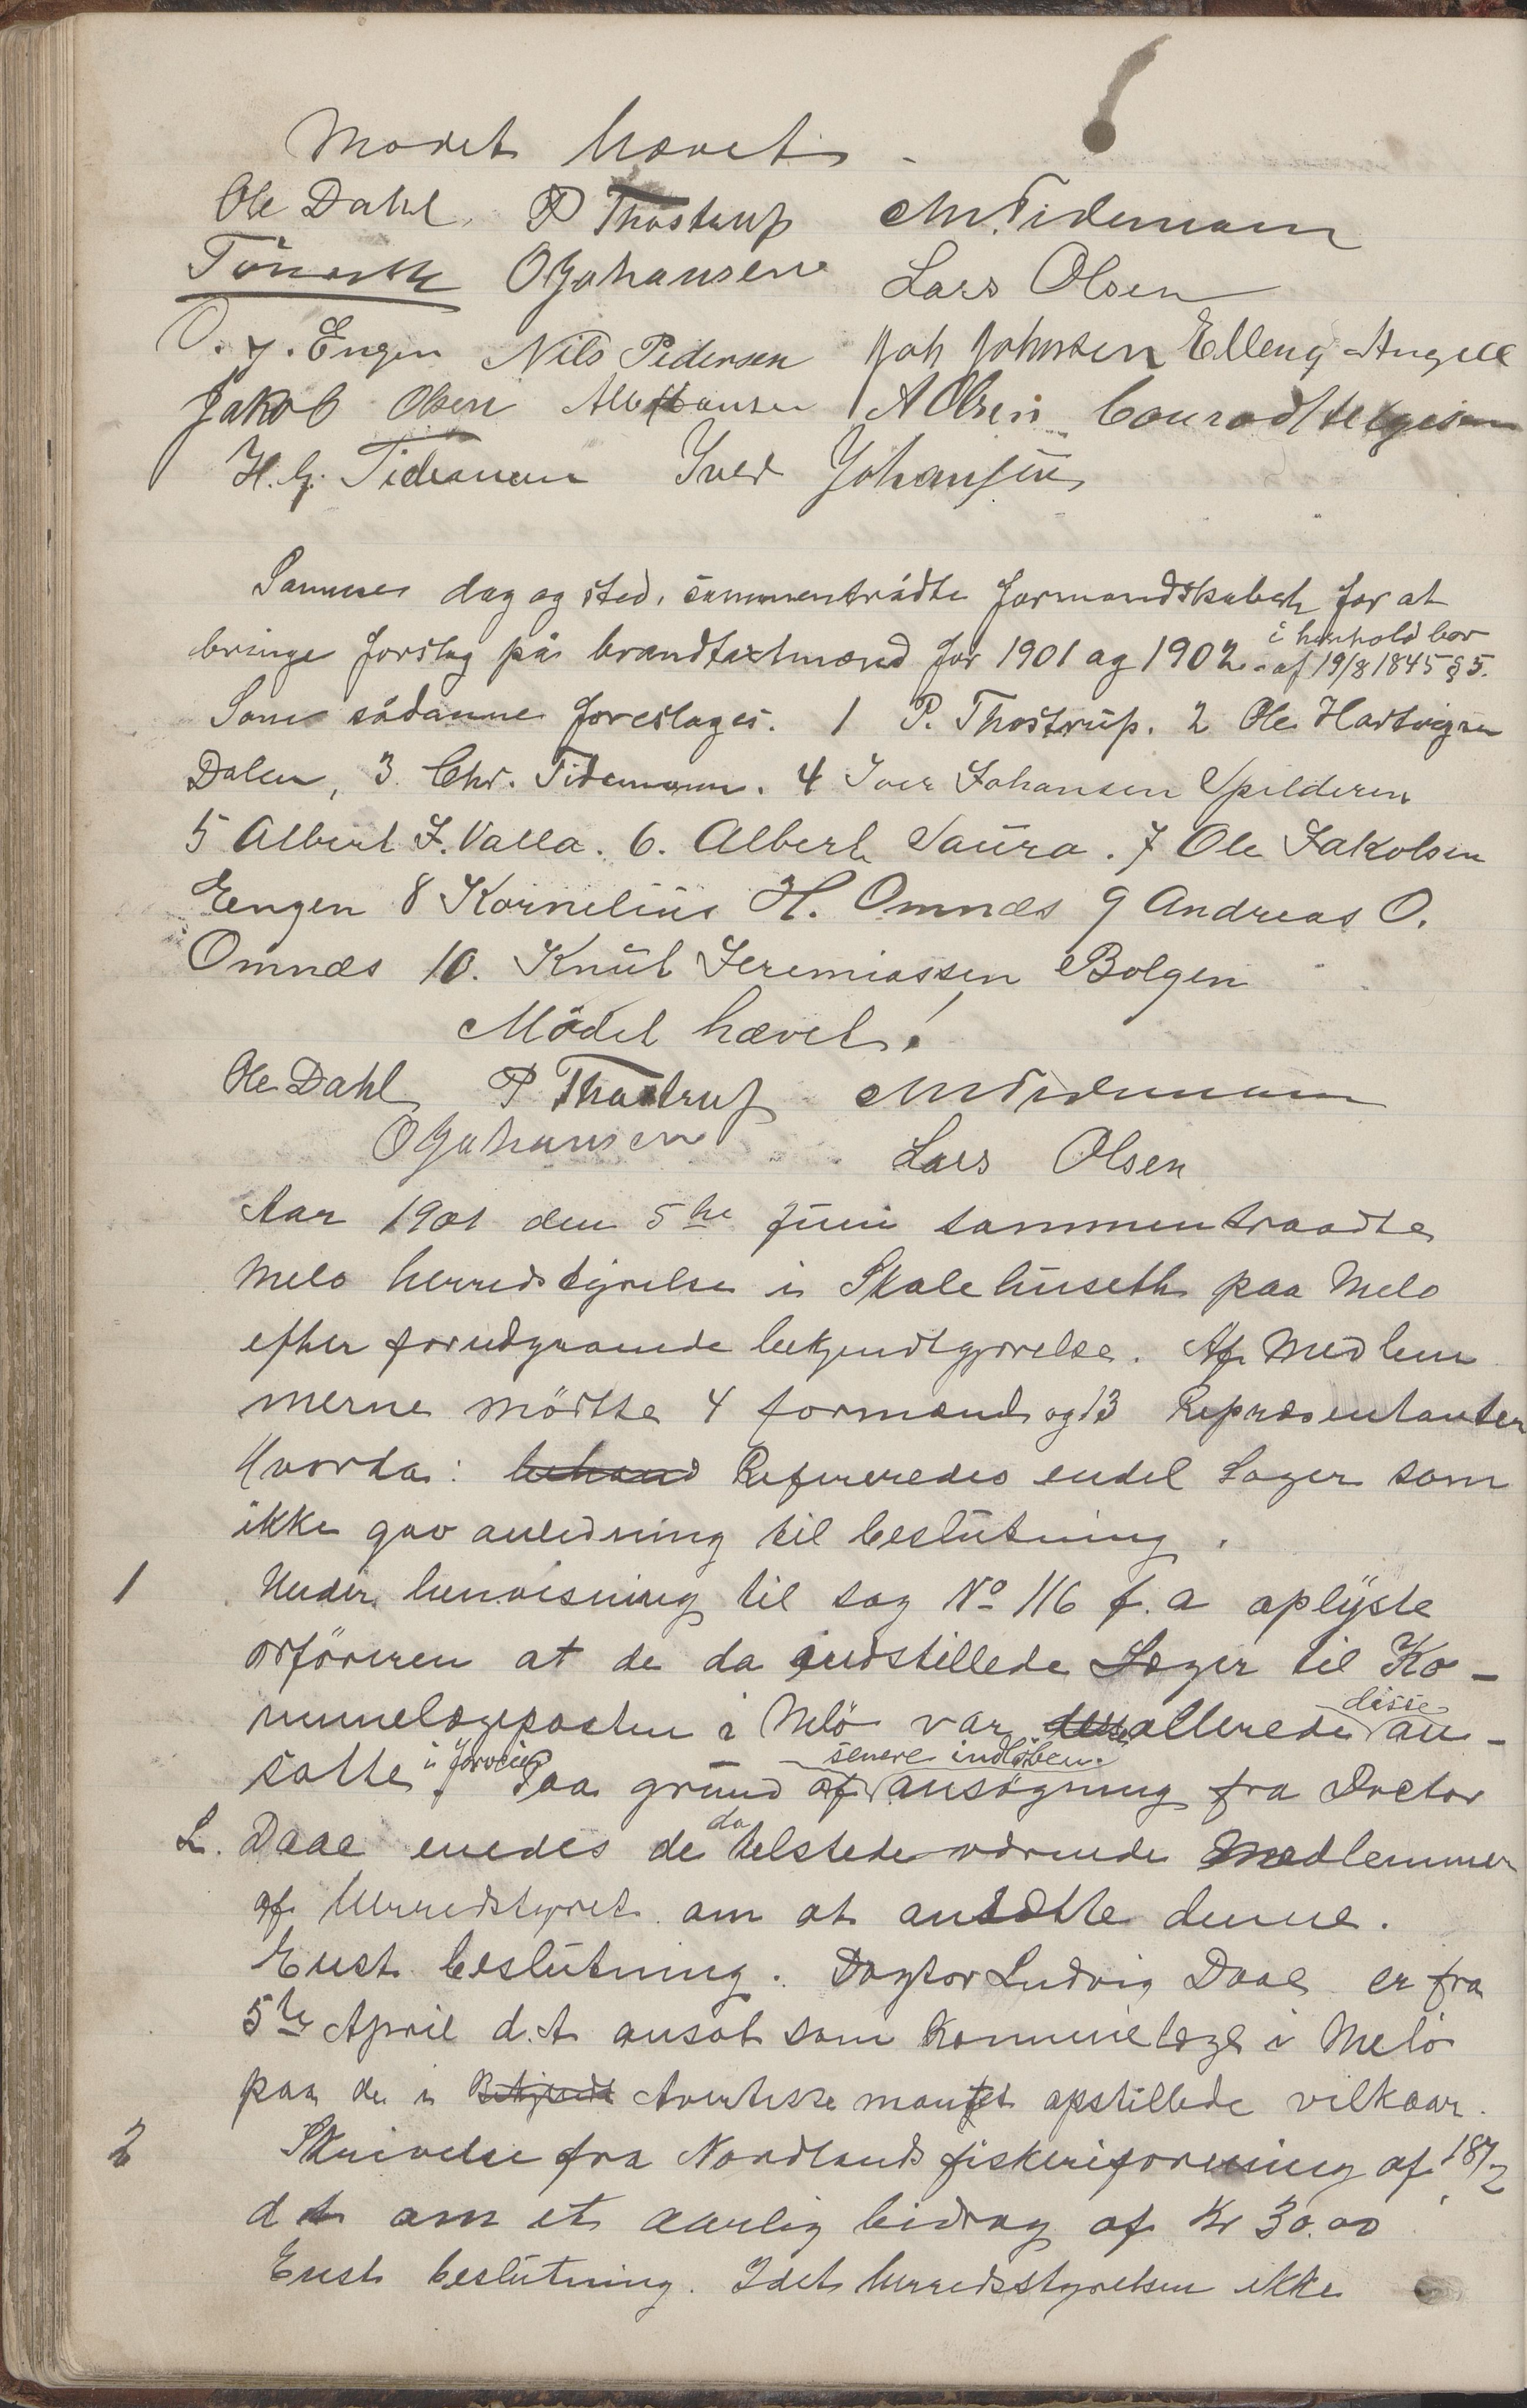 Mødet hævet.
Ole Dahl P Thostrup Chr. Tidemann
O Johansen Lars Olsen
O. J. Engen Nils Pedersen Joh Johnsen Elling Angell
Jakob Olsen Alb Hansen A Olsen Conrad Helgesen
H. G. Tidemann Iver Johansen
Sammes dag og sted, sammentrådte formandskabet for at
bringe forslag på brandtaxtmænd for 1901 og 1902. i henhold lov
af 19/8 1845 § 5.
Som sådanne foreslages. 1 P. Thostrup. 2 Ole Hartvigsen
Dalen, 3. Chr. Tidemann. 4 Iver Johansen Spilderen
5 Albert J. Valla. 6. Albert Saura. 7 Ole Jakobsen
Eengen 8 Kornelius H. Omnæs 9 Andreas O.
Omnæs 10. Knut Jeremiassen Bolgen
Mödet hævet!
Ole Dahl P Thostrup Chr Tidemann
O Johansen Lars Olsen
Aar 1901 den 5te Juni sammentraadte
Melø herredstyrelse i Skolehuseth paa Melø
efter forudgaaende bekjendtgjørelse. Af Medlem
merne mödtte 4 formænd og 13 Repræsentanter
Hvorda: behand Refereredes endel Sager som
ikke gav anledning til beslutning.
1 Under henvisning til sag No 116 f. a oplyste
ordföreren at de da indstillede Læger til Ko-
munelægeposten i Melö var allerede disse an-
satte i forveien. Paa grund af senere indløben ansögning fra Doctor
L. Daae enedes de da telstedeværende Medlemmer
af Herredstyret om at ansætte denne.
Enst beslutning. Dogtor Ludvig Daae er fra
5te April d. A ansat som Komunelæge i Melö
paa de i Bekjendt Avertissemanget opstillede vilkaar.
2 Skrivelse fra Nordlands fiskeriforening af 18/2
d A om et aarlig bidrag af Kr 30.00
Enst beslutning. Idet herredsstyrelsen ikke